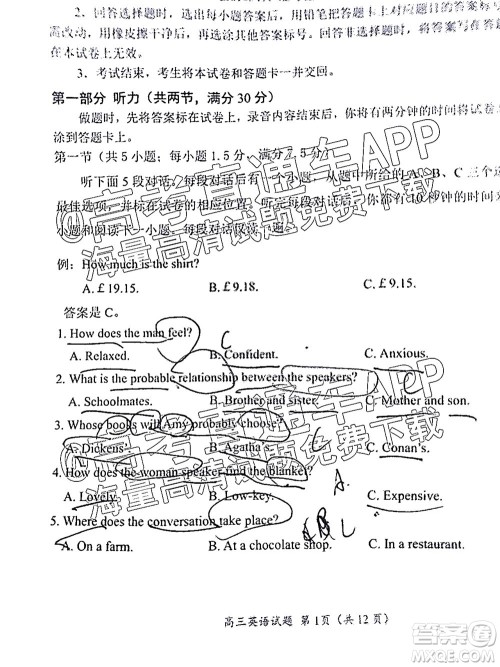 2. 回答选择题时，选出每小题答案后，用铅笔把答题卡上对应题目的答案标号涂黑。如
需改动，用橡皮擦干净后，再选涂其他答案标号。回答非选择题时，将答案写在答题
在本试卷上无效。
3. 考试结束，考生将本试卷和答题卡一并交回。
第一部分 听力（共两节，满分30分）
做题时，先将答案标在试卷上，录音内容结束后，你将有两分钟的时间将试卷
涂到答题卡上。
第一节（共5小题；每小题1.5分，满分7.5分）
听下面5段对话。每段对话后有一个小题，从题中所给的A、B、C三个选
最佳选项，并标在试卷的相应位置。听完每段对话后，你都有10秒钟的时间来
小题和阅读下一小题。每段对话仅读一遍。
例：How much is the shirt?
A. £19.15. B. £9.18. C. £9.15.
答案是 C。
1. How does the man feel? C
A. Relaxed. B. Confident. C. Anxious.
2. What is the probable relationship between the speakers?
A. Schoolmates. B. Brother and sister. C. Mother and son.
3. Whose books will Amy probably choose?
A. Dickens'. B. Agatha's. C. Conan's.
4. How does the woman speaker find the blanket?
A. Lovely. B. Low-key. A. C. Expensive.
5. Where does the conversation take place?
A. On a farm. B. At a chocolate shop. C. In a restaurant.
高三英语试题 第1页（共12页）
@高考直通车APP
海量高清试题免费下载
@高考直通车APP
海量高清试题免费下载
答案圈
MXQE.COM